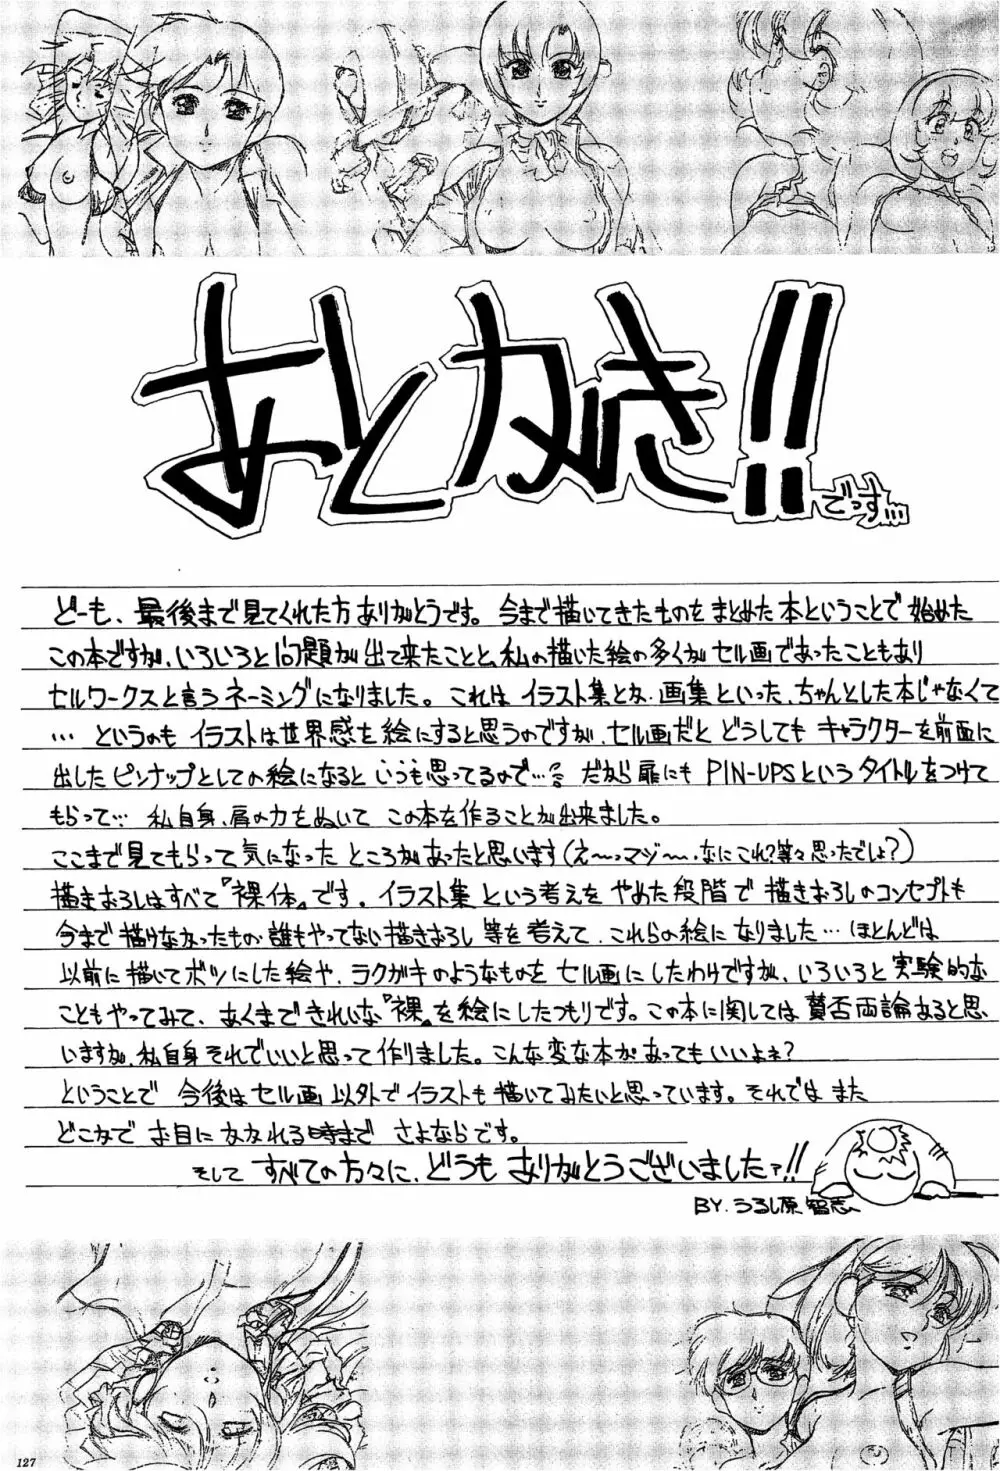 あとがき!!
でっす…
どーも、最後まで見てくれた方ありがとうです。今まで描いてきたものをまとめた本ということで始めた
この本ですが、いろいろと問題が出て来たことと、私の描いた絵の多くがセル画であったこともあり
セルワークスと言うネーミングになりました。これはイラスト集とか、画集といった、ちゃんとした本じゃなくて
…というのもイラストは世界感を絵にすると思うのですが、セル画だとどうしてもキャラクターを前面に
出したピンナップとしての絵になるといつも思ってるので…。だから扉にもPIN-UPSというタイトルをつけて
もらって…私自身、肩の力をぬいてこの本を作ることが出来ました。
ここまで見てもらって気になったところがあったと思います(え〜っマジ〜、なにこれ?等々思ったでしょ?)
描きおろしはすべて『裸体』です。イラスト集という考えをやめた段階で描きおろしのコンセプトも
今まで描けなかったもの・誰もやってない描きおろし等を考えて、これらの絵になりました…ほとんどは
以前に描いてボツにした絵や、ラクガキのようなものをセル画にしたわけですが、いろいろと実験的な
こともやってみて、あくまできれいな『裸』を絵にしたつもりです。この本に関しては賛否両論あると思
いますが、私自身それでいいと思って作りました。こんな変な本があってもいいよネ?
ということで今後はセル画以外でイラストも描いてみたいと思っています。それではまた
どこかでお目にかかれる時までさよならです。
そしてすべての方々に、どうもありがとうございましたァ!!
BY.うるし原智志
127